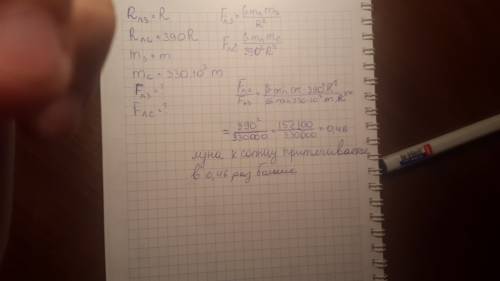 Rлз = R
Rлс = 390R
mз = m
mс = 330·10³ m
Fлз = ?
Fлс = ?
Fлз = Gmлmз / R²
Fлс = Gmлmс / 390²R²
Fлс / Fлз = Gmлm·390²R² / Gmл330·10³mR²
= 390² / 330000 = 152100 / 330000 = 0,46
луна к солнцу притягивается
в 0,46 раз больше